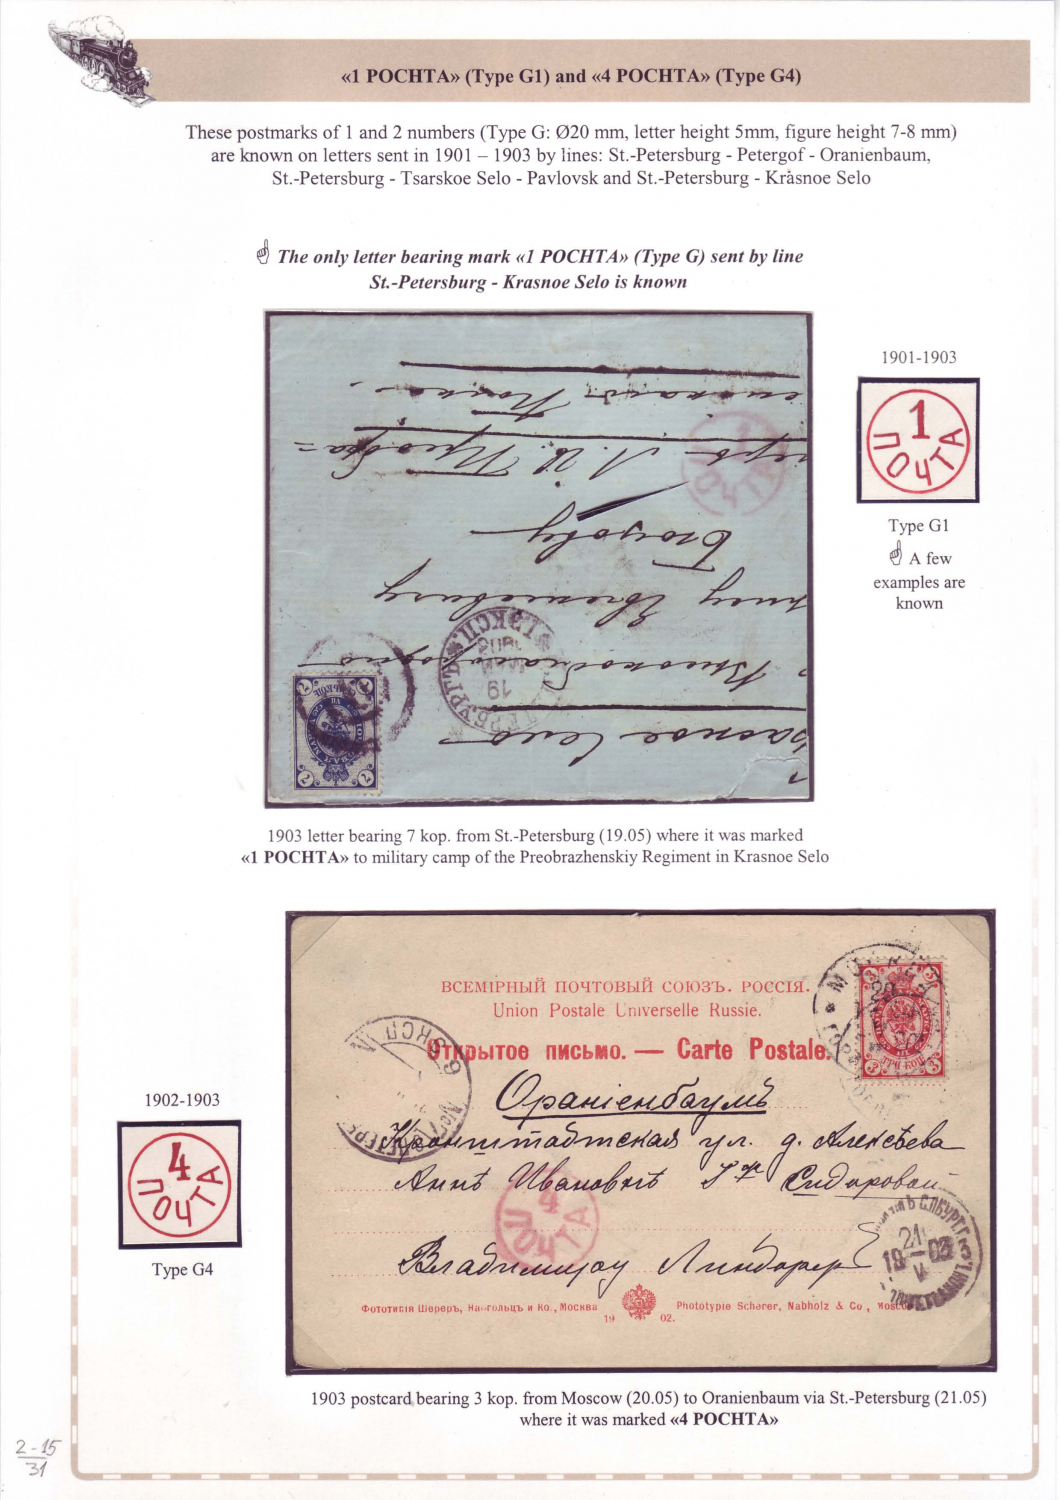 «1 POCHTA» (Type G1) and «4 POCHTA» (Type G4)
These postmarks of 1 and 2 numbers (Type G: Ø20 mm, letter height 5mm, figure height 7-8 mm)
are known on letters sent in 1901 – 1903 by lines: St.-Petersburg - Petergof - Oranienbaum,
St.-Petersburg - Tsarskoe Selo - Pavlovsk and St.-Petersburg - Kràsnoe Selo
The only letter bearing mark «1 POCHTA» (Type G) sent by line
St.-Petersburg - Krasnoe Selo is known
1901-1903
1
ПОЧТА
Type G1
A few
examples are
known
1
ПОЧТА
1 ЭКСП.
19
МАЯ
1903
2
2
2
2
1903 letter bearing 7 kop. from St.-Petersburg (19.05) where it was marked
«1 POCHTA» to military camp of the Preobrazhenskiy Regiment in Krasnoe Selo
ВСЕМІРНЫЙ ПОЧТОВЫЙ СОЮЗЪ. РОССІЯ.
Union Postale Universelle Russie.
Открытое письмо. — Carte Postale.
МОСКВА
20
3
3
3
3
ТРИ КОП.
6 ЭКСП
Ораніенбаумъ
Кронштадтская ул. д. Алексѣева
Аннѣ Ивановнѣ Сидоровой
4
ПОЧТА
Владимиру
21
1903
V
Фототипія Шереръ, Набгольцъ и Ко., Москва
1902.
Phototypie Scherer, Nabholz & Co., Moscou
1902-1903
4
ПОЧТА
Type G4
1903 postcard bearing 3 kop. from Moscow (20.05) to Oranienbaum via St.-Petersburg (21.05)
where it was marked «4 POCHTA»
2-15
31